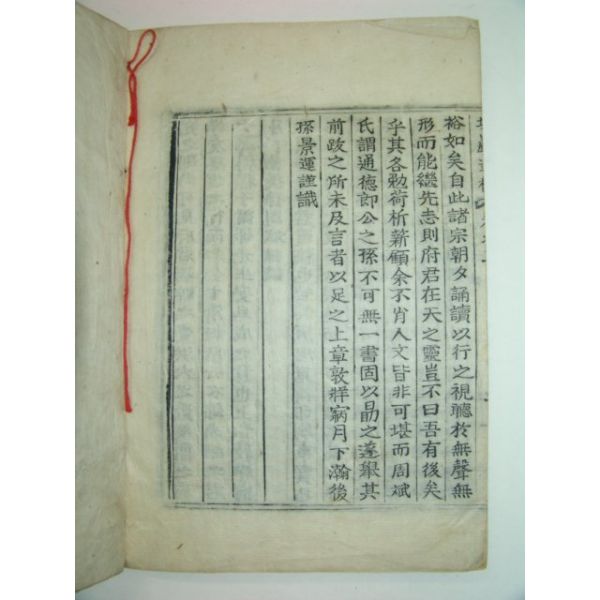 裕如矣自此諸宗朝夕誦讀以行之視聽於無聲無
形而能繼先志則府君在天之靈豈不曰吾有後矣
乎其各勉荷析薪顧余不肖人文皆非可堪而周斌
氏謂通德郞公之孫不可無一書固以勗之遂擧其
前跋之所未及言者以足之上章敦牂窉月下瀚後
孫景運謹識